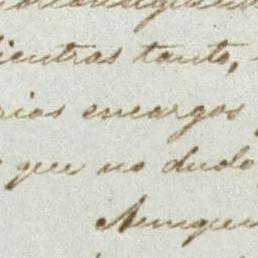 ientras tanto,
rios encargos
que no dudo
Aunque